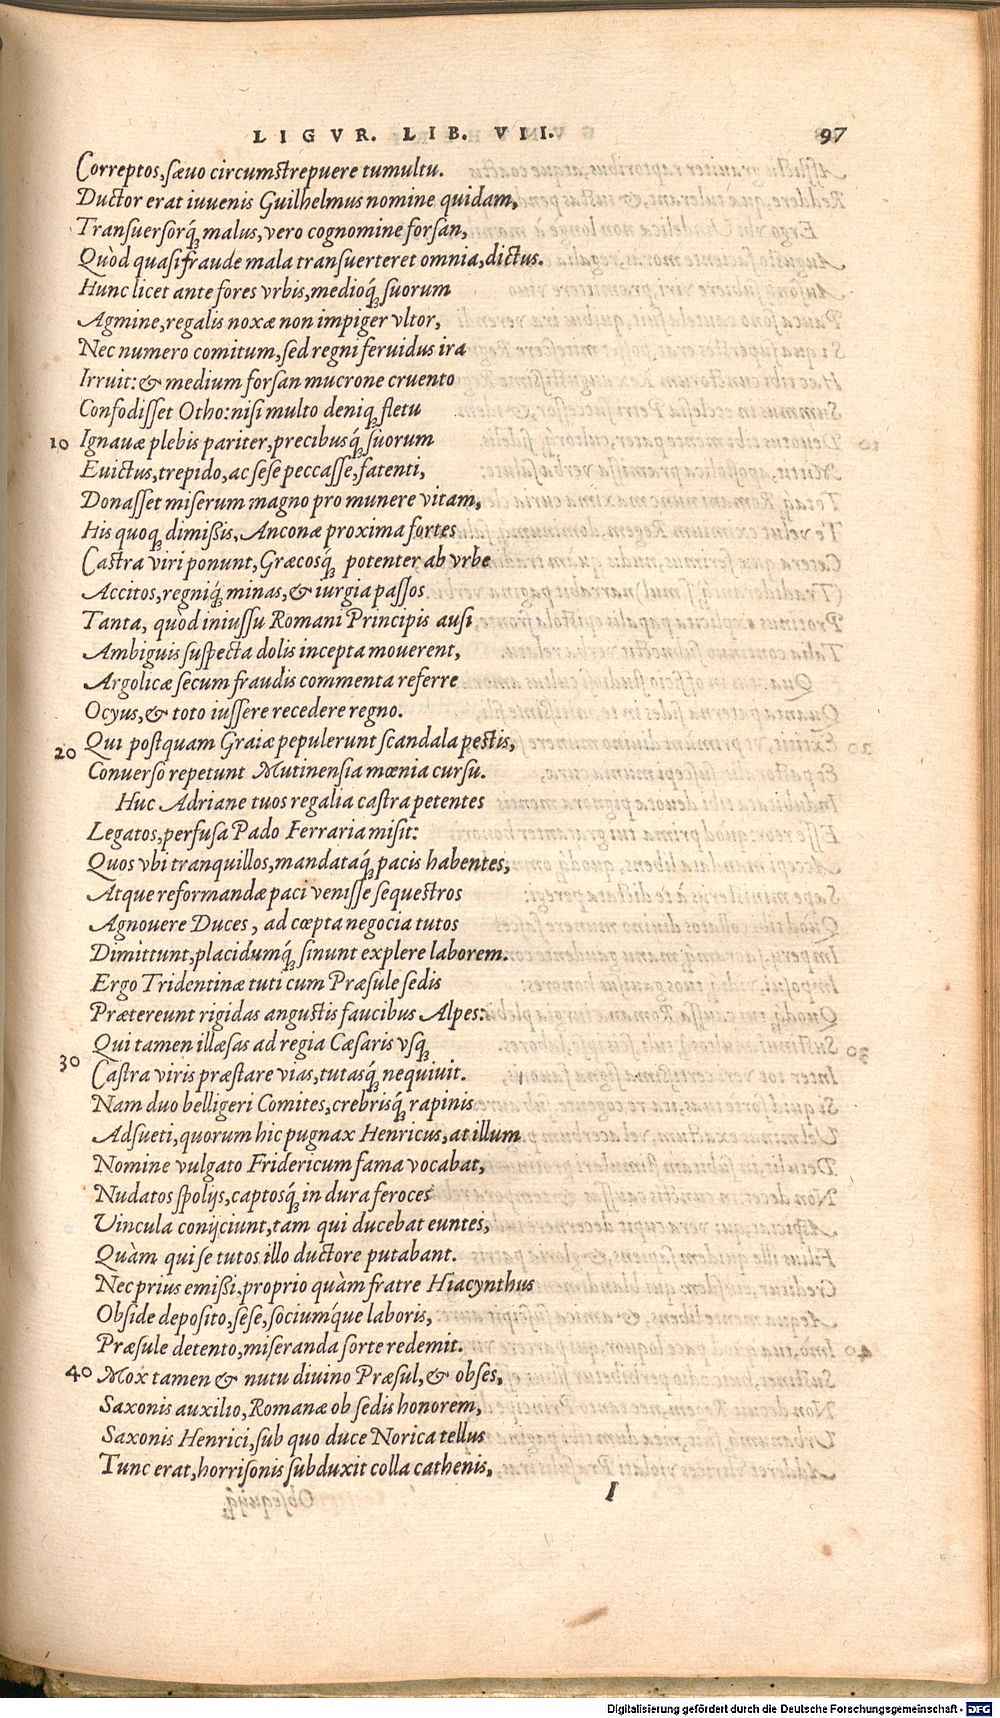 LIGVR. LIB. VII. 97
Correptos, sæuo circumstrepuere tumultu.
Ductor erat iuuenis Guilhelmus nomine quidam,
Transuersorq́; malus, vero cognomine forsan,
Quòd quasi fraude mala transuerteret omnia, dictus.
Hunc licet ante fores vrbis, medioq́; suorum
Agmine, regalis noxæ non impiger vltor,
Nec numero comitum, sed regni feruidus ira
Irruit: & medium forsan mucrone cruento
Confodisset Otho: nisi multo deniq; fletu
10 Ignauæ plebis pariter, precibusq́; suorum
Euictus, trepido, ac sese peccasse, fatenti,
Donasset miserum magno pro munere vitam,
His quoq; dimißis, Anconæ proxima fortes
Castra viri ponunt, Græcosq́; potenter ab vrbe
Accitos, regniq́; minas, & iurgia passos
Tanta, quòd iniussu Romani Principis ausi
Ambiguis suspecta dolis incepta mouerent,
Argolicæ secum fraudis commenta referre
Ocyus, & toto iussere recedere regno.
20 Qui postquam Graiæ pepulerunt scandala pestis,
Conuerso repetunt Mutinensia mœnia cursu.
Huc Adriane tuos regalia castra petentes
Legatos, perfusa Pado Ferraria misit:
Quos vbi tranquillos, mandataq́; pacis habentes,
Atque reformandæ paci venisse sequestros
Agnouere Duces, ad cœpta negocia tutos
Dimittunt, placidumq́; sinunt explere laborem.
Ergo Tridentinæ tuti cum Præsule sedis
Prætereunt rigidas angustis faucibus Alpes:
30 Qui tamen illæsas ad regia Cæsaris vsq;
Castra viris præstare vias, tutasq́; nequiuit.
Nam duo belligeri Comites, crebrisq́; rapinis
Adsueti, quorum hic pugnax Henricus, at illum
Nomine vulgato Fridericum fama vocabat,
Nudatos spolijs, captosq́; in dura feroces
Vincula conijciunt, tam qui ducebat euntes,
Quàm qui se tutos illo ductore putabant.
Nec prius emißi, proprio quàm fratre Hiacynthus
Obside deposito, sese, sociumq́ue laboris,
Præsule detento, miseranda sorte redemit.
40 Mox tamen & nutu diuino Præsul, & obses,
Saxonis auxilio, Romanæ ob sedis honorem,
Saxonis Henrici, sub quo duce Norica tellus
Tunc erat, horrisonis subduxit colla cathenis,
I
Digitalisierung gefördert durch die Deutsche Forschungsgemeinschaft - DFG